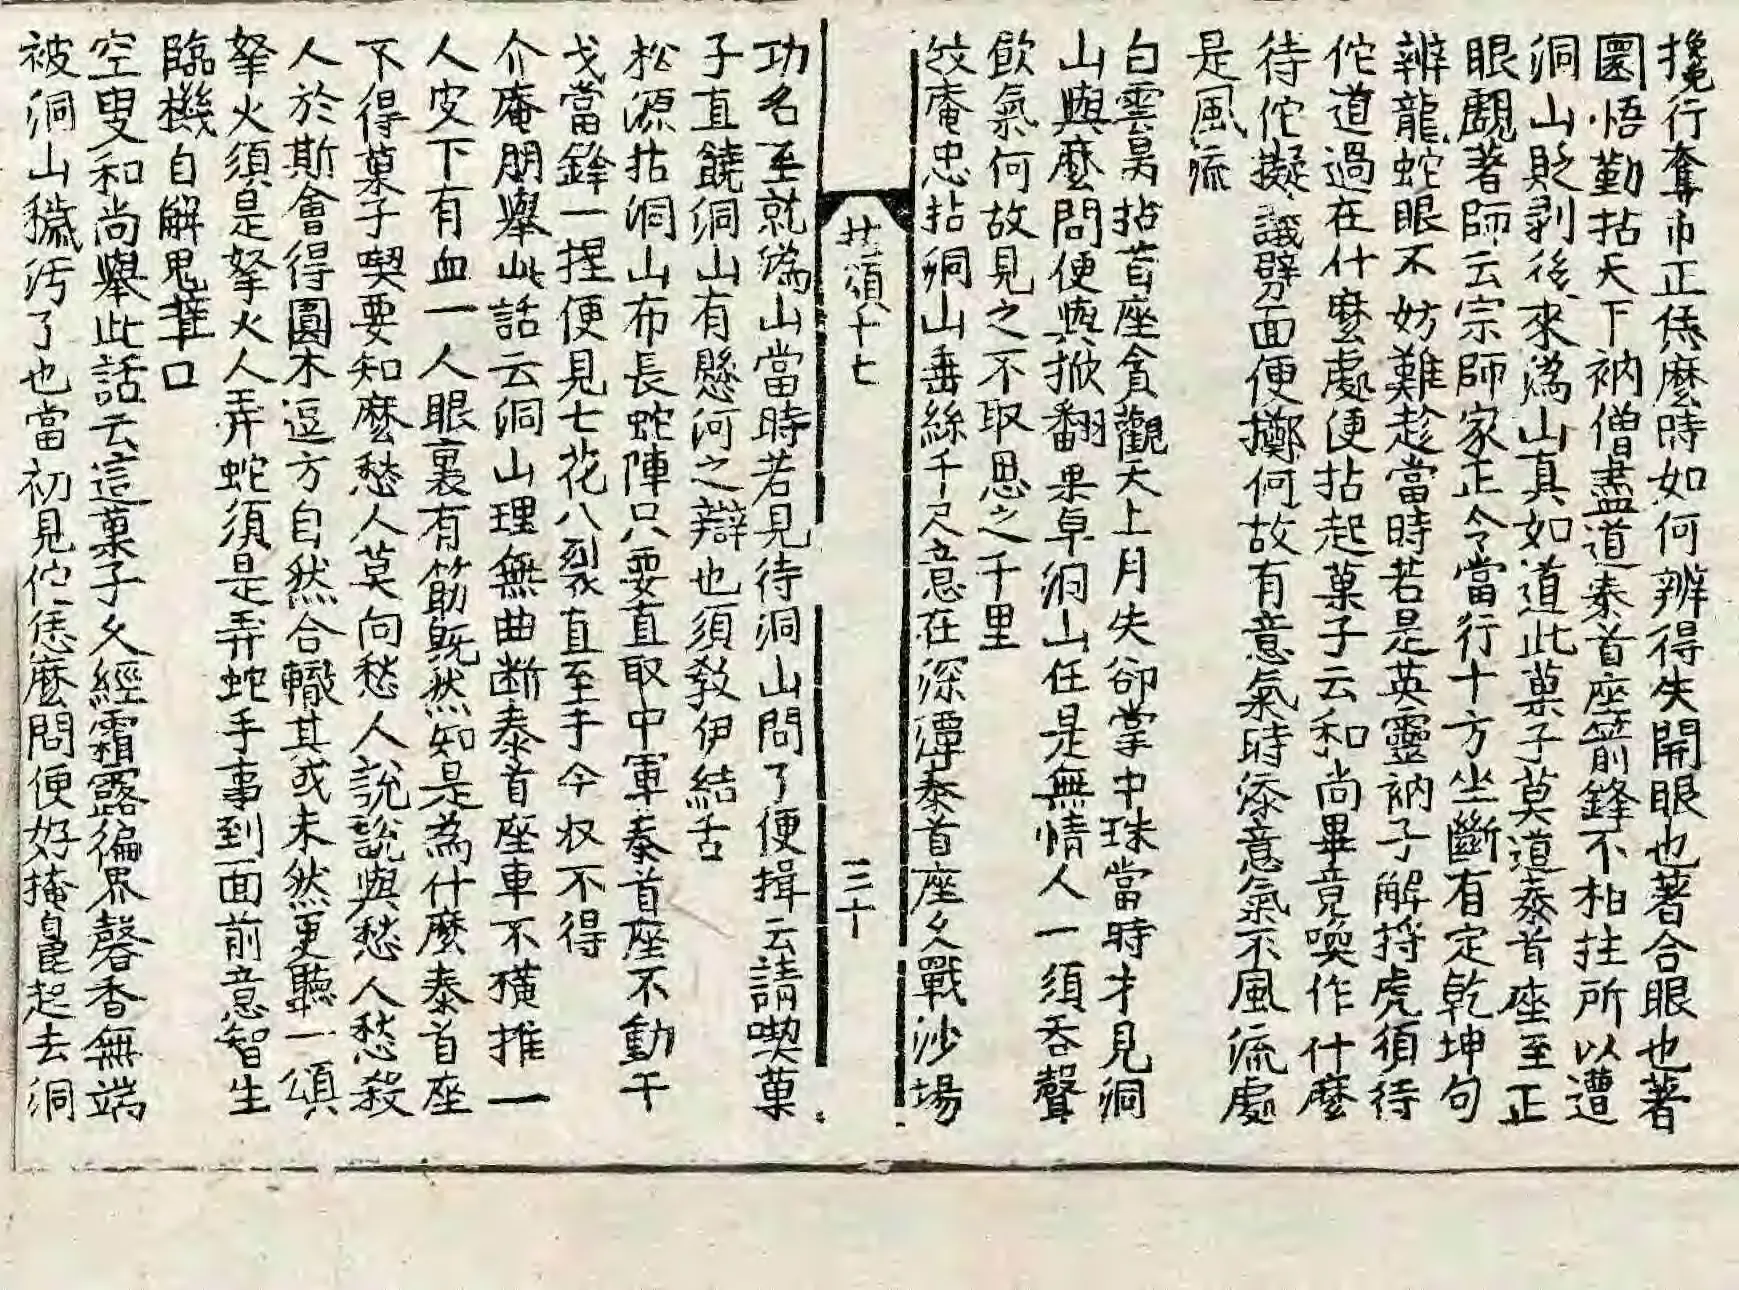 攙行奪市正恁麼時如何辨得失開眼也著合眼也著
圜悟勤拈天下衲僧盡道泰首座箭鋒不相拄所以遭
洞山貶剥後來溈山真如道此菓子莫道泰首座至正
眼覷著師云宗師家正令當行十方坐斷有定乾坤句
辨龍蛇眼不妨難趁當時若是英靈衲子解捋虎須待
佗道過在什麼處便拈起菓子云和尚畢竟喚作什麼
待佗擬議劈面便擲何故有意氣時添意氣不風流處
是風流
白雲昺拈首座貪觀天上月失卻掌中珠當時才見洞
山與麼問便與掀翻果卓洞山任是無情人一須吞聲
飲氣何故見之不取思之千里
𣫍庵忠拈洞山垂絲千尺意在深潭泰首座久戰沙場
拈頌十七
三十
功名至就溈山當時若見待洞山問了便揖云請喫菓
子直饒洞山有懸河之辯也須教伊結舌
松源拈洞山布長蛇陣只要直取中軍泰首座不動干
戈當鋒一捏便見七花八裂直至于今收不得
介庵朋舉此話云洞山理無曲断泰首座車不橫推一
人皮下有血一人眼裏有筋既然知是為什麼泰首座
不得菓子喫要知麼愁人莫向愁人說說與愁人愁殺
人於斯會得圓木逗方自然合轍其或未然更聽一頌
拏火須是拏火人弄蛇須是弄蛇手事到面前意智生
臨機自解鬼𦘕口
空叟和尚舉此話云這菓子久經霜露徧界馨香無端
被洞山穢污了也當初見佗恁麼問便好掩鼻起去洞